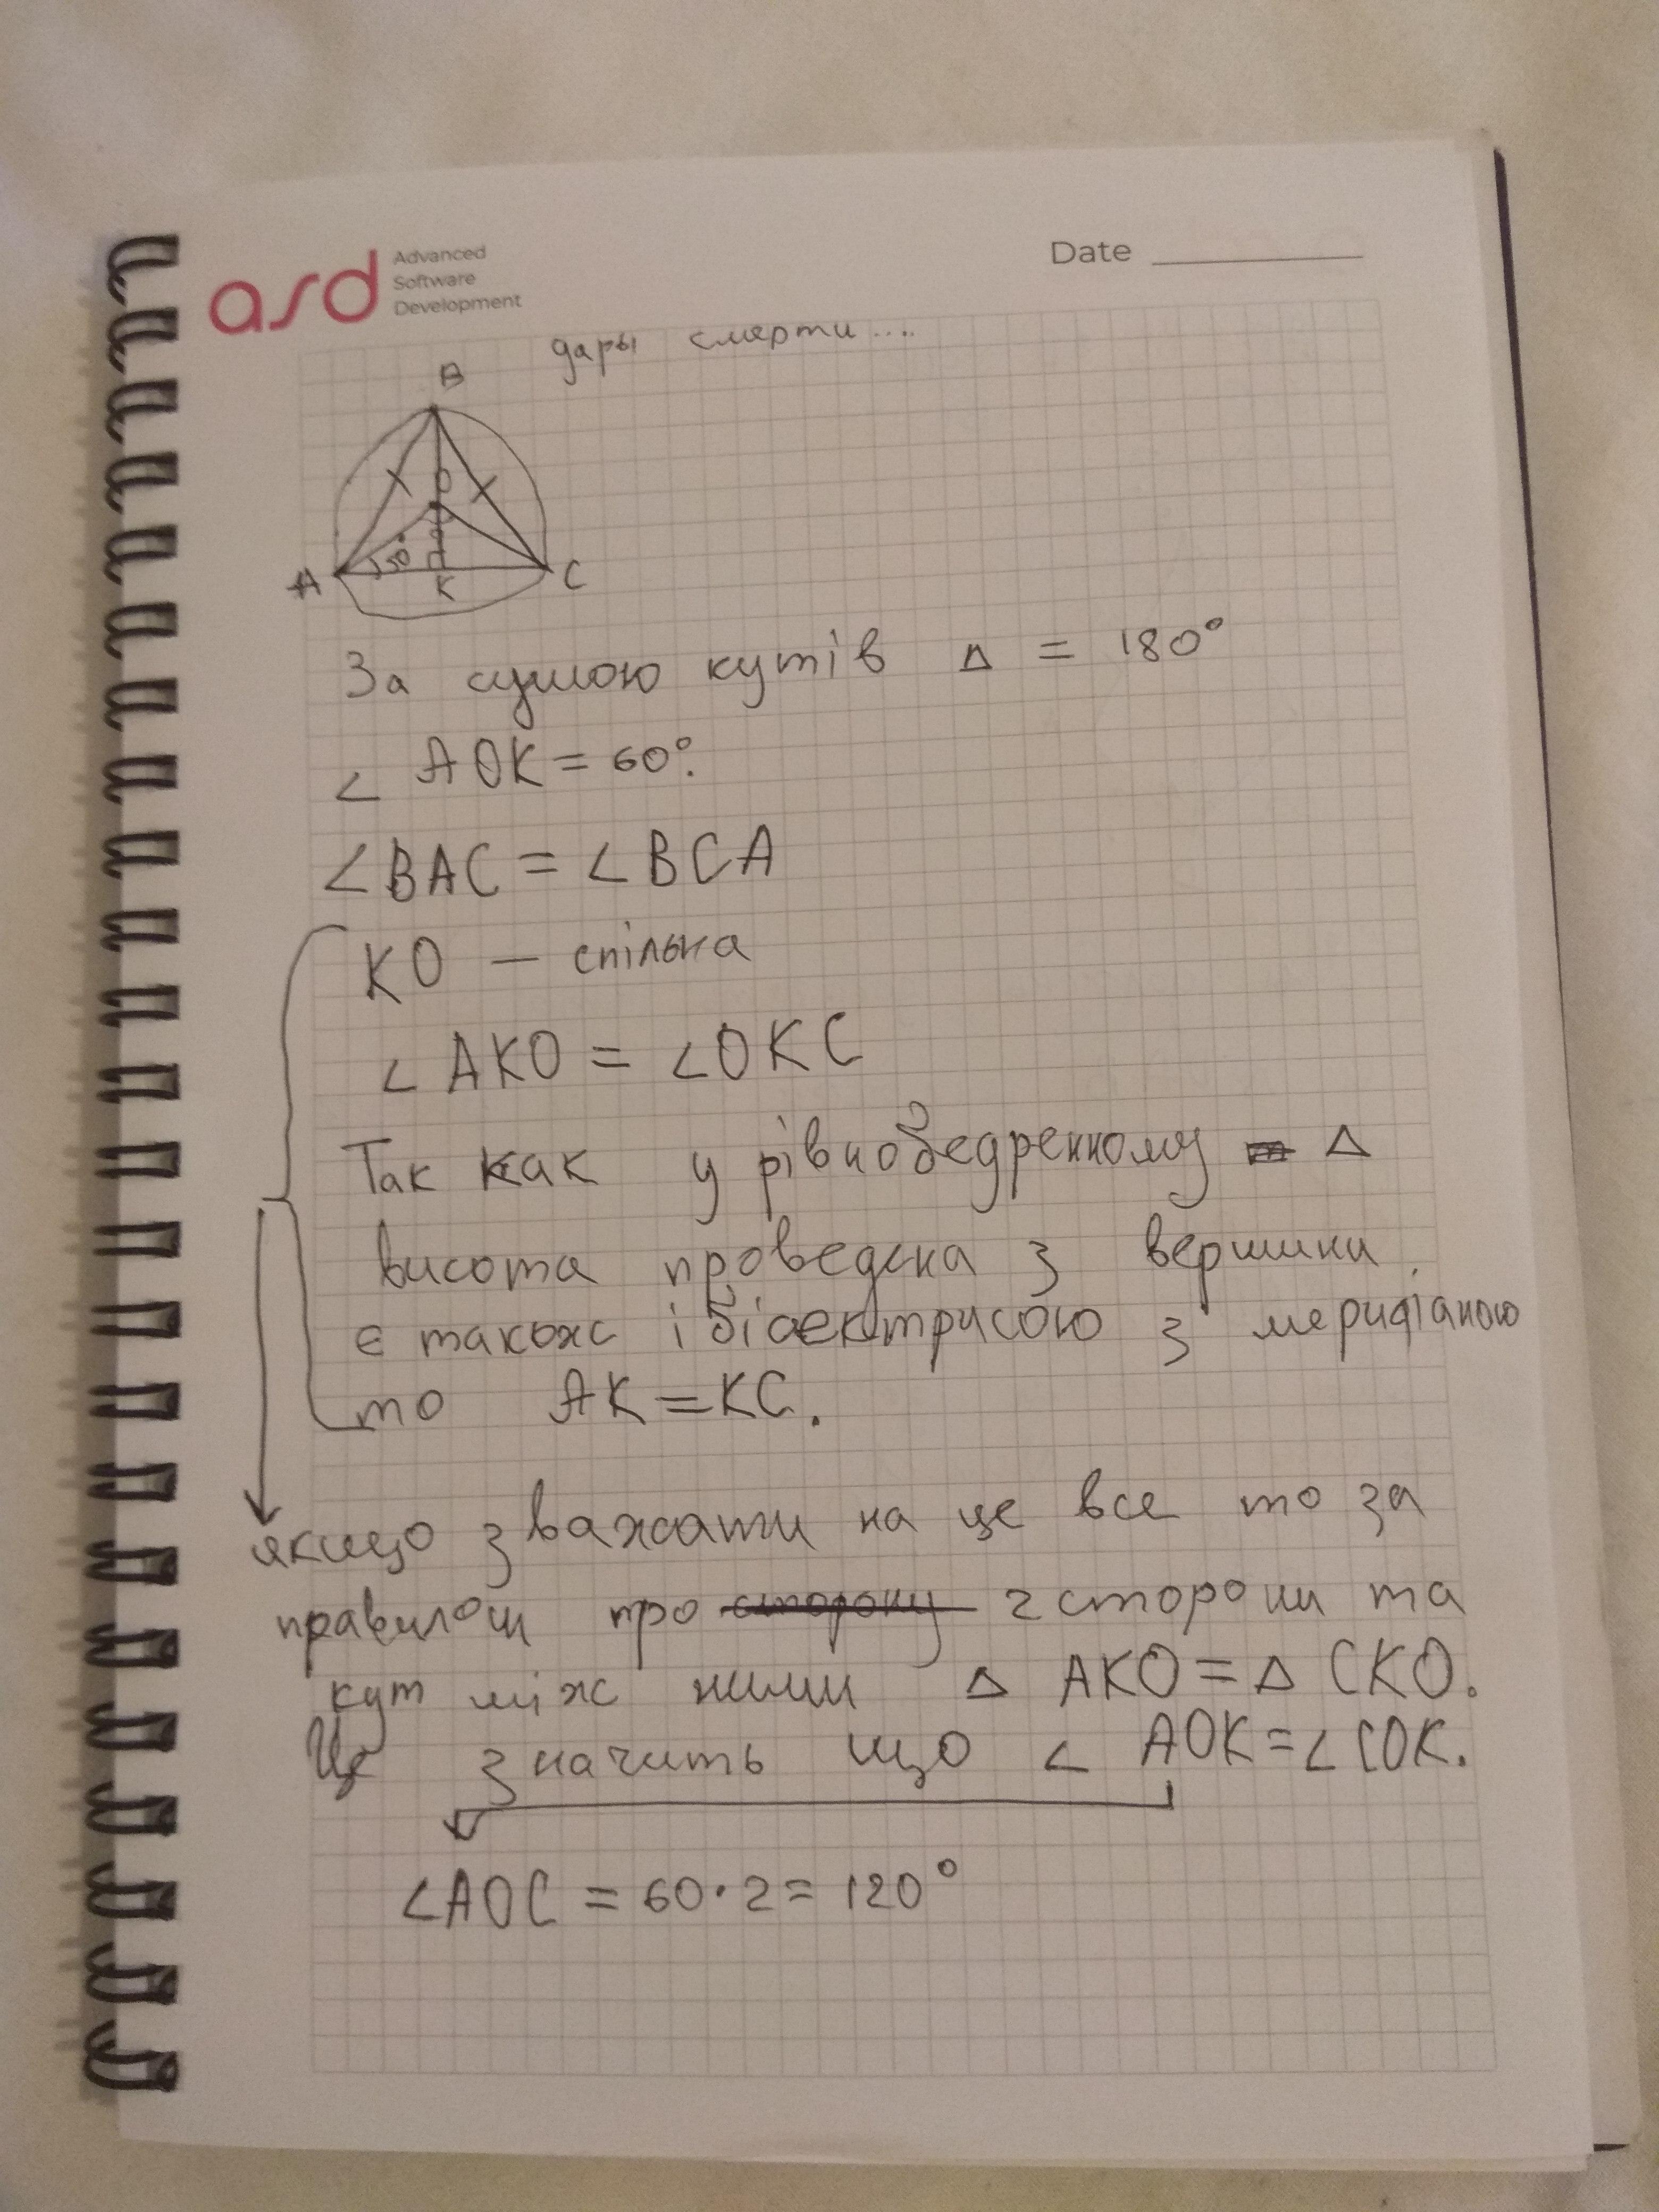 asd Advanced
Software
Development
Date
дары смерти....
B
O
A
C
K
За сумою кутів Δ = 180°
∠ AOK = 60°.
∠BAC = ∠BCA
KO — спільна
∠ AKO = ∠OKC
Так как у рівнобедренному Δ
висота проведена з вершини
є також і бісектрисою з меридіаною
то AK = KC.
якщо зважати на це все то за
правилом про сторону 2 сторони та
кут між ними Δ AKO = Δ CKO.
Це значить що ∠ AOK = ∠ COK.
∠AOC = 60·2 = 120°